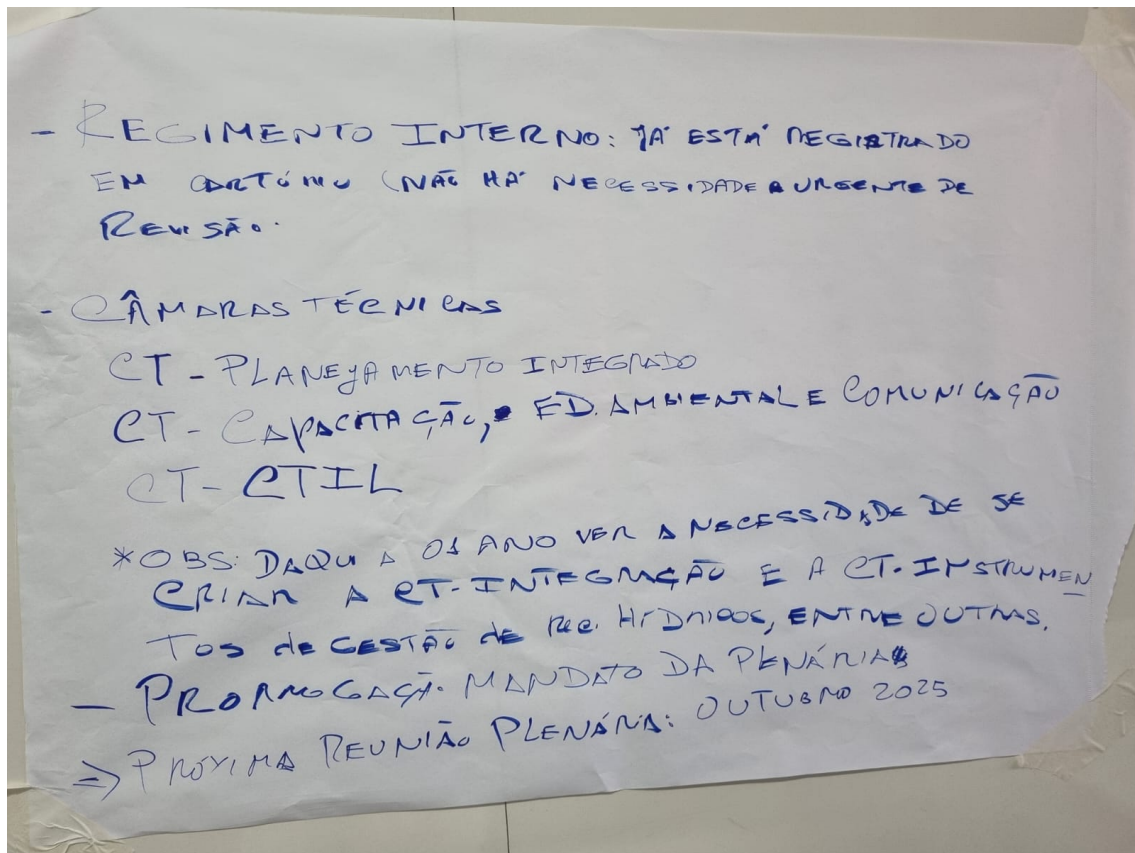 - REGIMENTO INTERNO: JÁ ESTÁ REGISTRADO
EM CARTÓRIO (NÃO HÁ NECESSIDADE URGENTE DE
REVISÃO.
- CÂMARAS TÉCNICAS
CT - PLANEJAMENTO INTEGRADO
CT - CAPACITAÇÃO, ED. AMBIENTAL E COMUNICAÇÃO
CT - CTIL
* OBS: DAQUI A 01 ANO VER A NECESSIDADE DE SE
CRIAR A CT-INTEGRAÇÃO E A CT. INSTRUMEN
TOS de GESTÃO de REC. HÍDRICOS, ENTRE OUTRAS.
- PRORROGAÇÃO MANDATO DA PLENÁRIA
=> PRÓXIMA REUNIÃO PLENÁRIA: OUTUBRO 2025